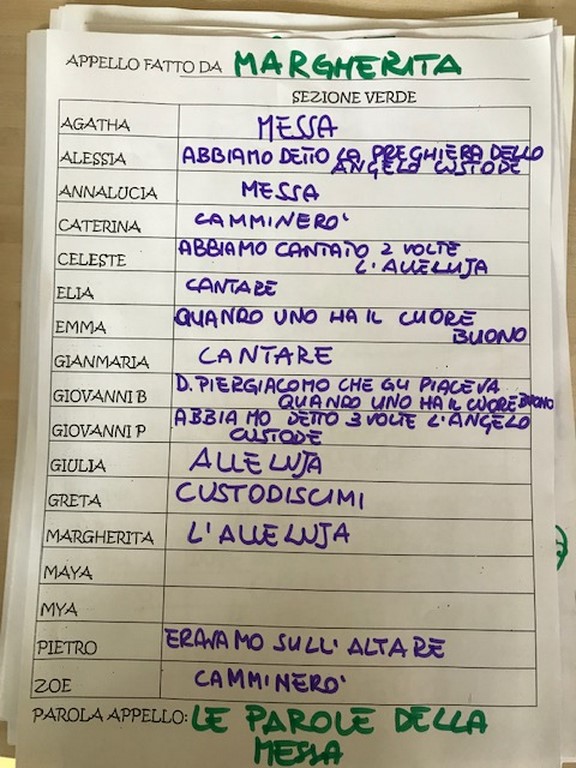 APPELLO FATTO DA MARGHERITA
SEZIONE VERDE
AGATHA MESSA
ALESSIA ABBIAMO DETTO LA PREGHIERA DELLO
ANGELO CUSTODE
ANNALUCIA MESSA
CATERINA CAMMINERO'
CELESTE ABBIAMO CANTATO 2 VOLTE
L'ALLELUJA
ELIA CANTARE
EMMA QUANDO UNO HA IL CUORE
BUONO
GIANMARIA CANTARE
GIOVANNI B D. PIERGIACOMO CHE GLI PIACEVA
QUANDO UNO HA IL CUORE BUONO
GIOVANNI P ABBIAMO DETTO 3 VOLTE L'ANGELO
CUSTODE
GIULIA ALLELUJA
GRETA CUSTODISCIMI
MARGHERITA L'ALLELUJA
MAYA
MYA
PIETRO ERAVAMO SULL'ALTARE
ZOE CAMMINERO'
PAROLA APPELLO: LE PAROLE DELLA
MESSA